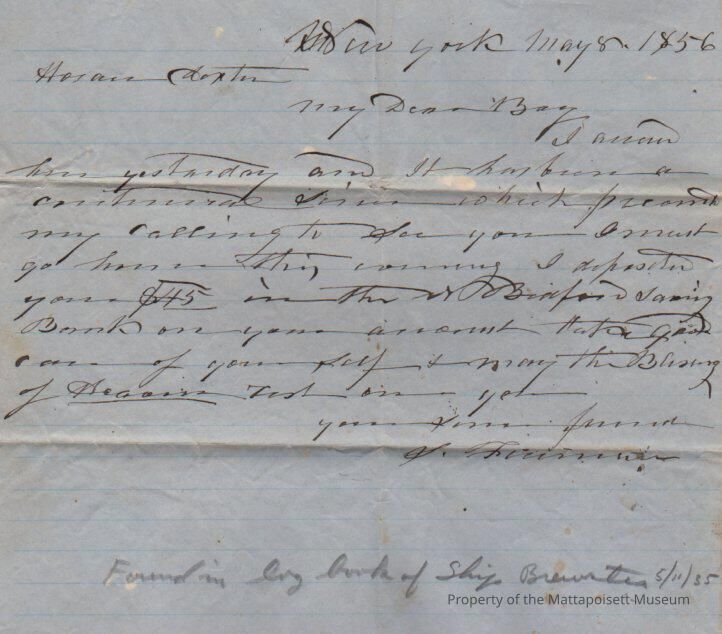 New york May 8. 1856
Hosam Dexter
My Dear Boy
I
here yesterday and It has been a
continual which prevents
my calling to See you I must
go home this evening I deposited
your $45 in the N Bedford Saving
Bank on your account take good
care of your self & may the Blessing
of Heaven rest on you
your friend
Found in log book of Ship Brewster 5/11/35
Property of the Mattapoisett Museum